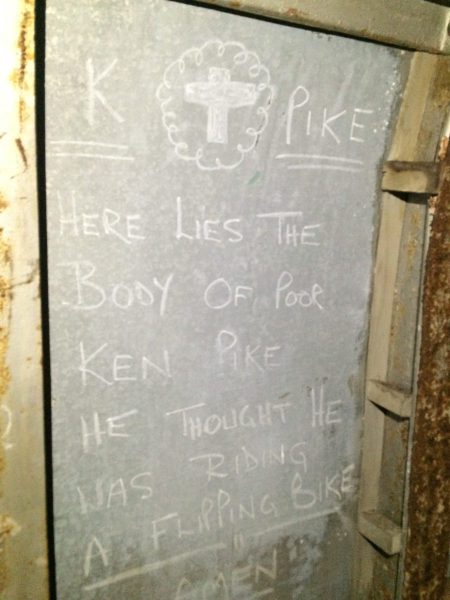 K PIKE
HERE LIES THE
BODY OF POOR
KEN PIKE
HE THOUGHT HE
WAS RIDING
A FLIPPING BIKE
"
AMEN